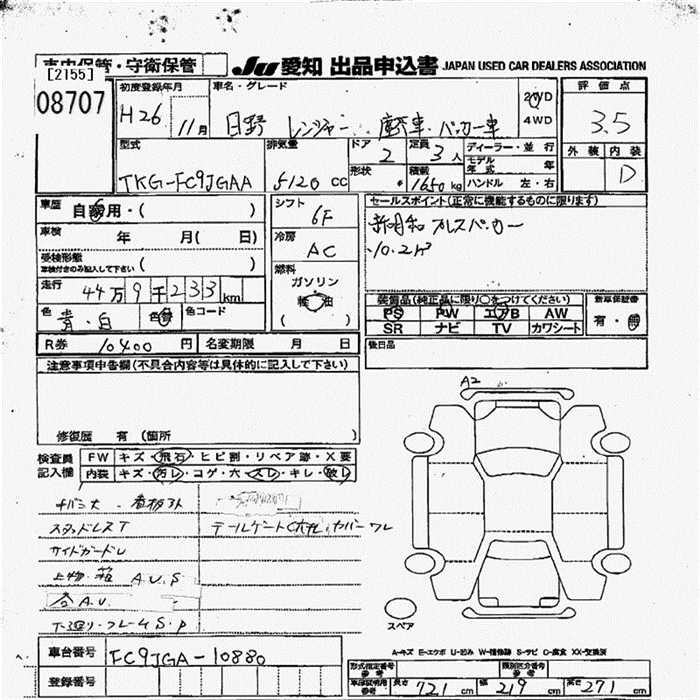 車内保管・守衛保管
JU 愛知 出品申込書 JAPAN USED CAR DEALERS ASSOCIATION
[2155]
08707
初度登録年月
H26 11月
車名・グレード
日野 レンジャー 塵芥車・パッカー車
2WD
4WD
評価点
3.5
型式
TKG-FC9JGAA
排気量
5120 cc
ドア
2
定員
3人
形状
積載
1650 kg
ディーラー・並行
モデル年式 年
ハンドル 左・右
外装 内装
D
車歴 自家用・( )
車検 年 月( 日)
受検形態
車検付きのみ記入して下さい ( )
走行 44万9千233km
色 青・白 色替 色コード
R券 10400円 名変期限 月 日
シフト
6F
冷房
AC
燃料
ガソリン
軽油
セールスポイント(正常に機能するものに限ります)
新明和 プレスパッカー
10.2m³
装備品(純正品に限り○をつけてください)
PS PW エアB AW
SR ナビ TV カワシート
新車保証書
有・無
後日品
注意事項申告欄(不具合内容等は具体的に記入して下さい)
修復歴 有(箇所 )
検査員記入欄
FW キズ・飛石・ヒビ割・リペア跡・X要
内装 キズ・汚レ・コゲ・穴・スレ・キレ・破レ
スタッドレスT
テールゲート
カバーワレ
サイドガードU
上物・箱 A.U.S.
A.U.
下廻り・フレームS.P
A2
スペア
A-キズ E-エクボ U-凹み W-補修跡 S-サビ C-腐食 XX-交換済
車台番号 FC9JGA-10880
登録番号
型式指定番号 類別区分番号
長さ 721cm 幅 219cm 高さ 271cm